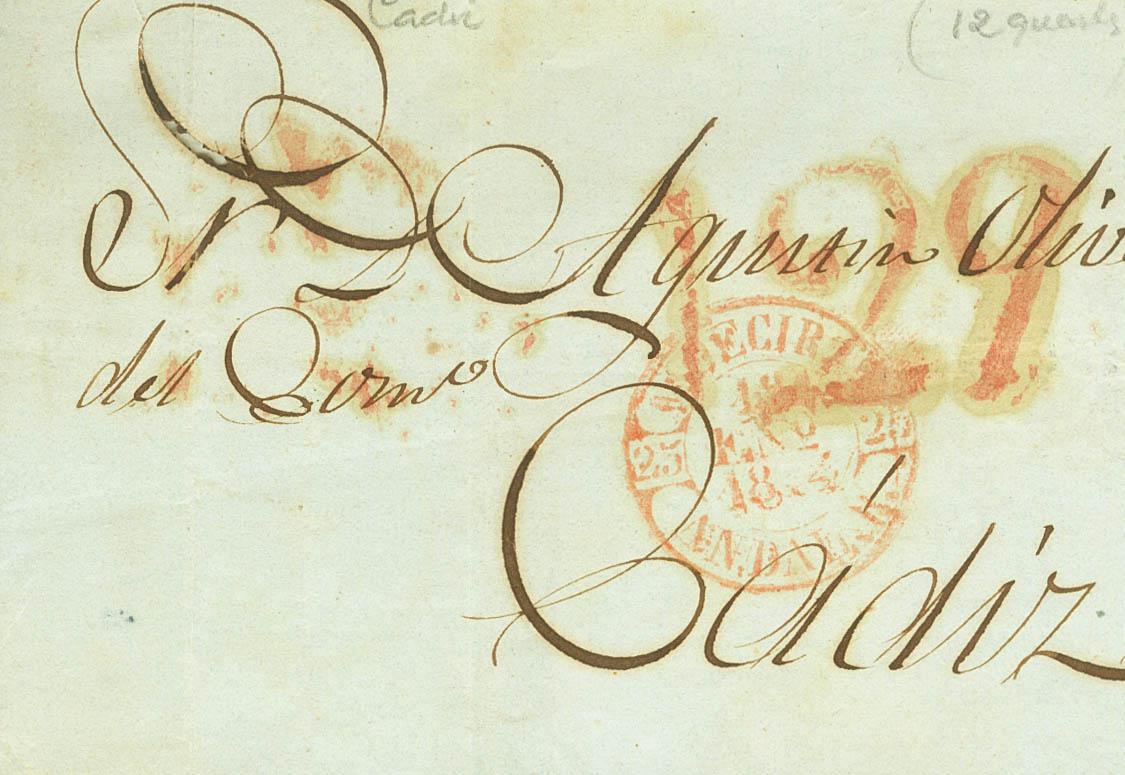 Cadiz (12 quarts
Sr. D. Agustin Oliv
del Com.o
Cadiz
ECIJA
25 25
ENO
18
ANDAL.A